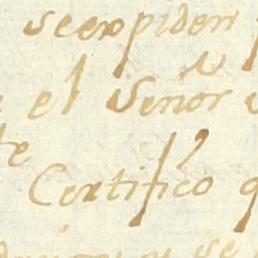 seexpiden
el Señor
te
Certifico q